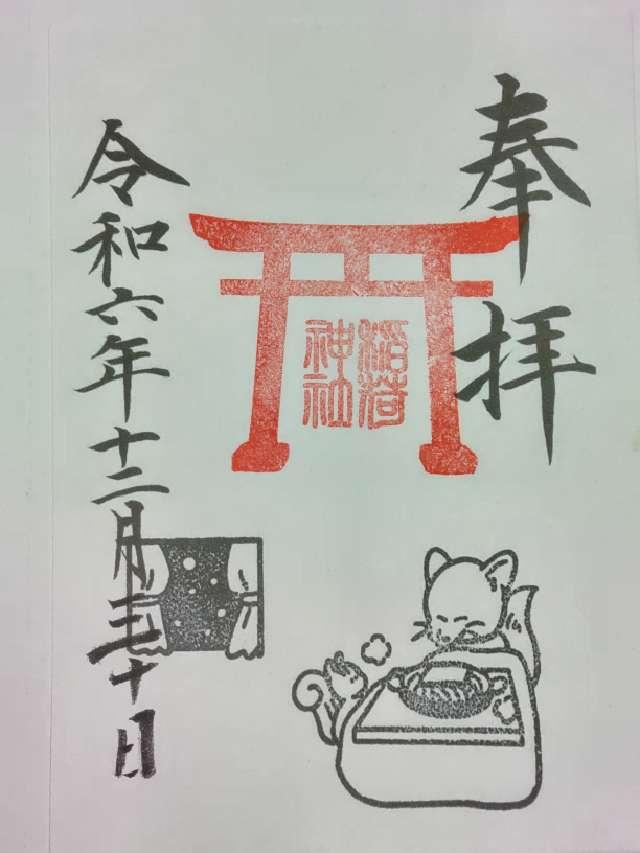 奉拝
稲荷
神社
令和六年十二月三十日